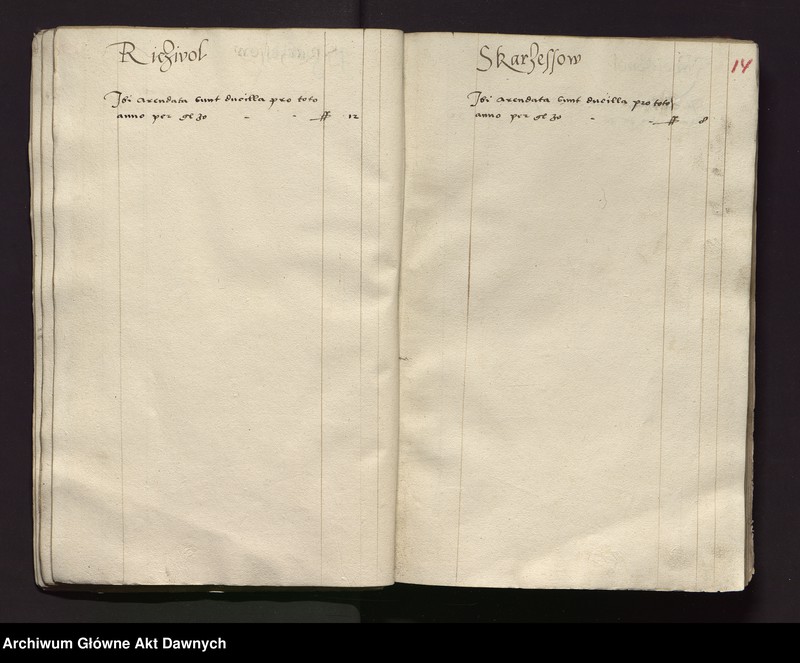 Riczivol
Ibi arendata sunt ducilla pro toto
anno per gl 30 - - ff 12
Skarzessow
14
Ibi arendata sunt ducilla pro toto
anno per gl 30 - - ff 8
Archiwum Główne Akt Dawnych